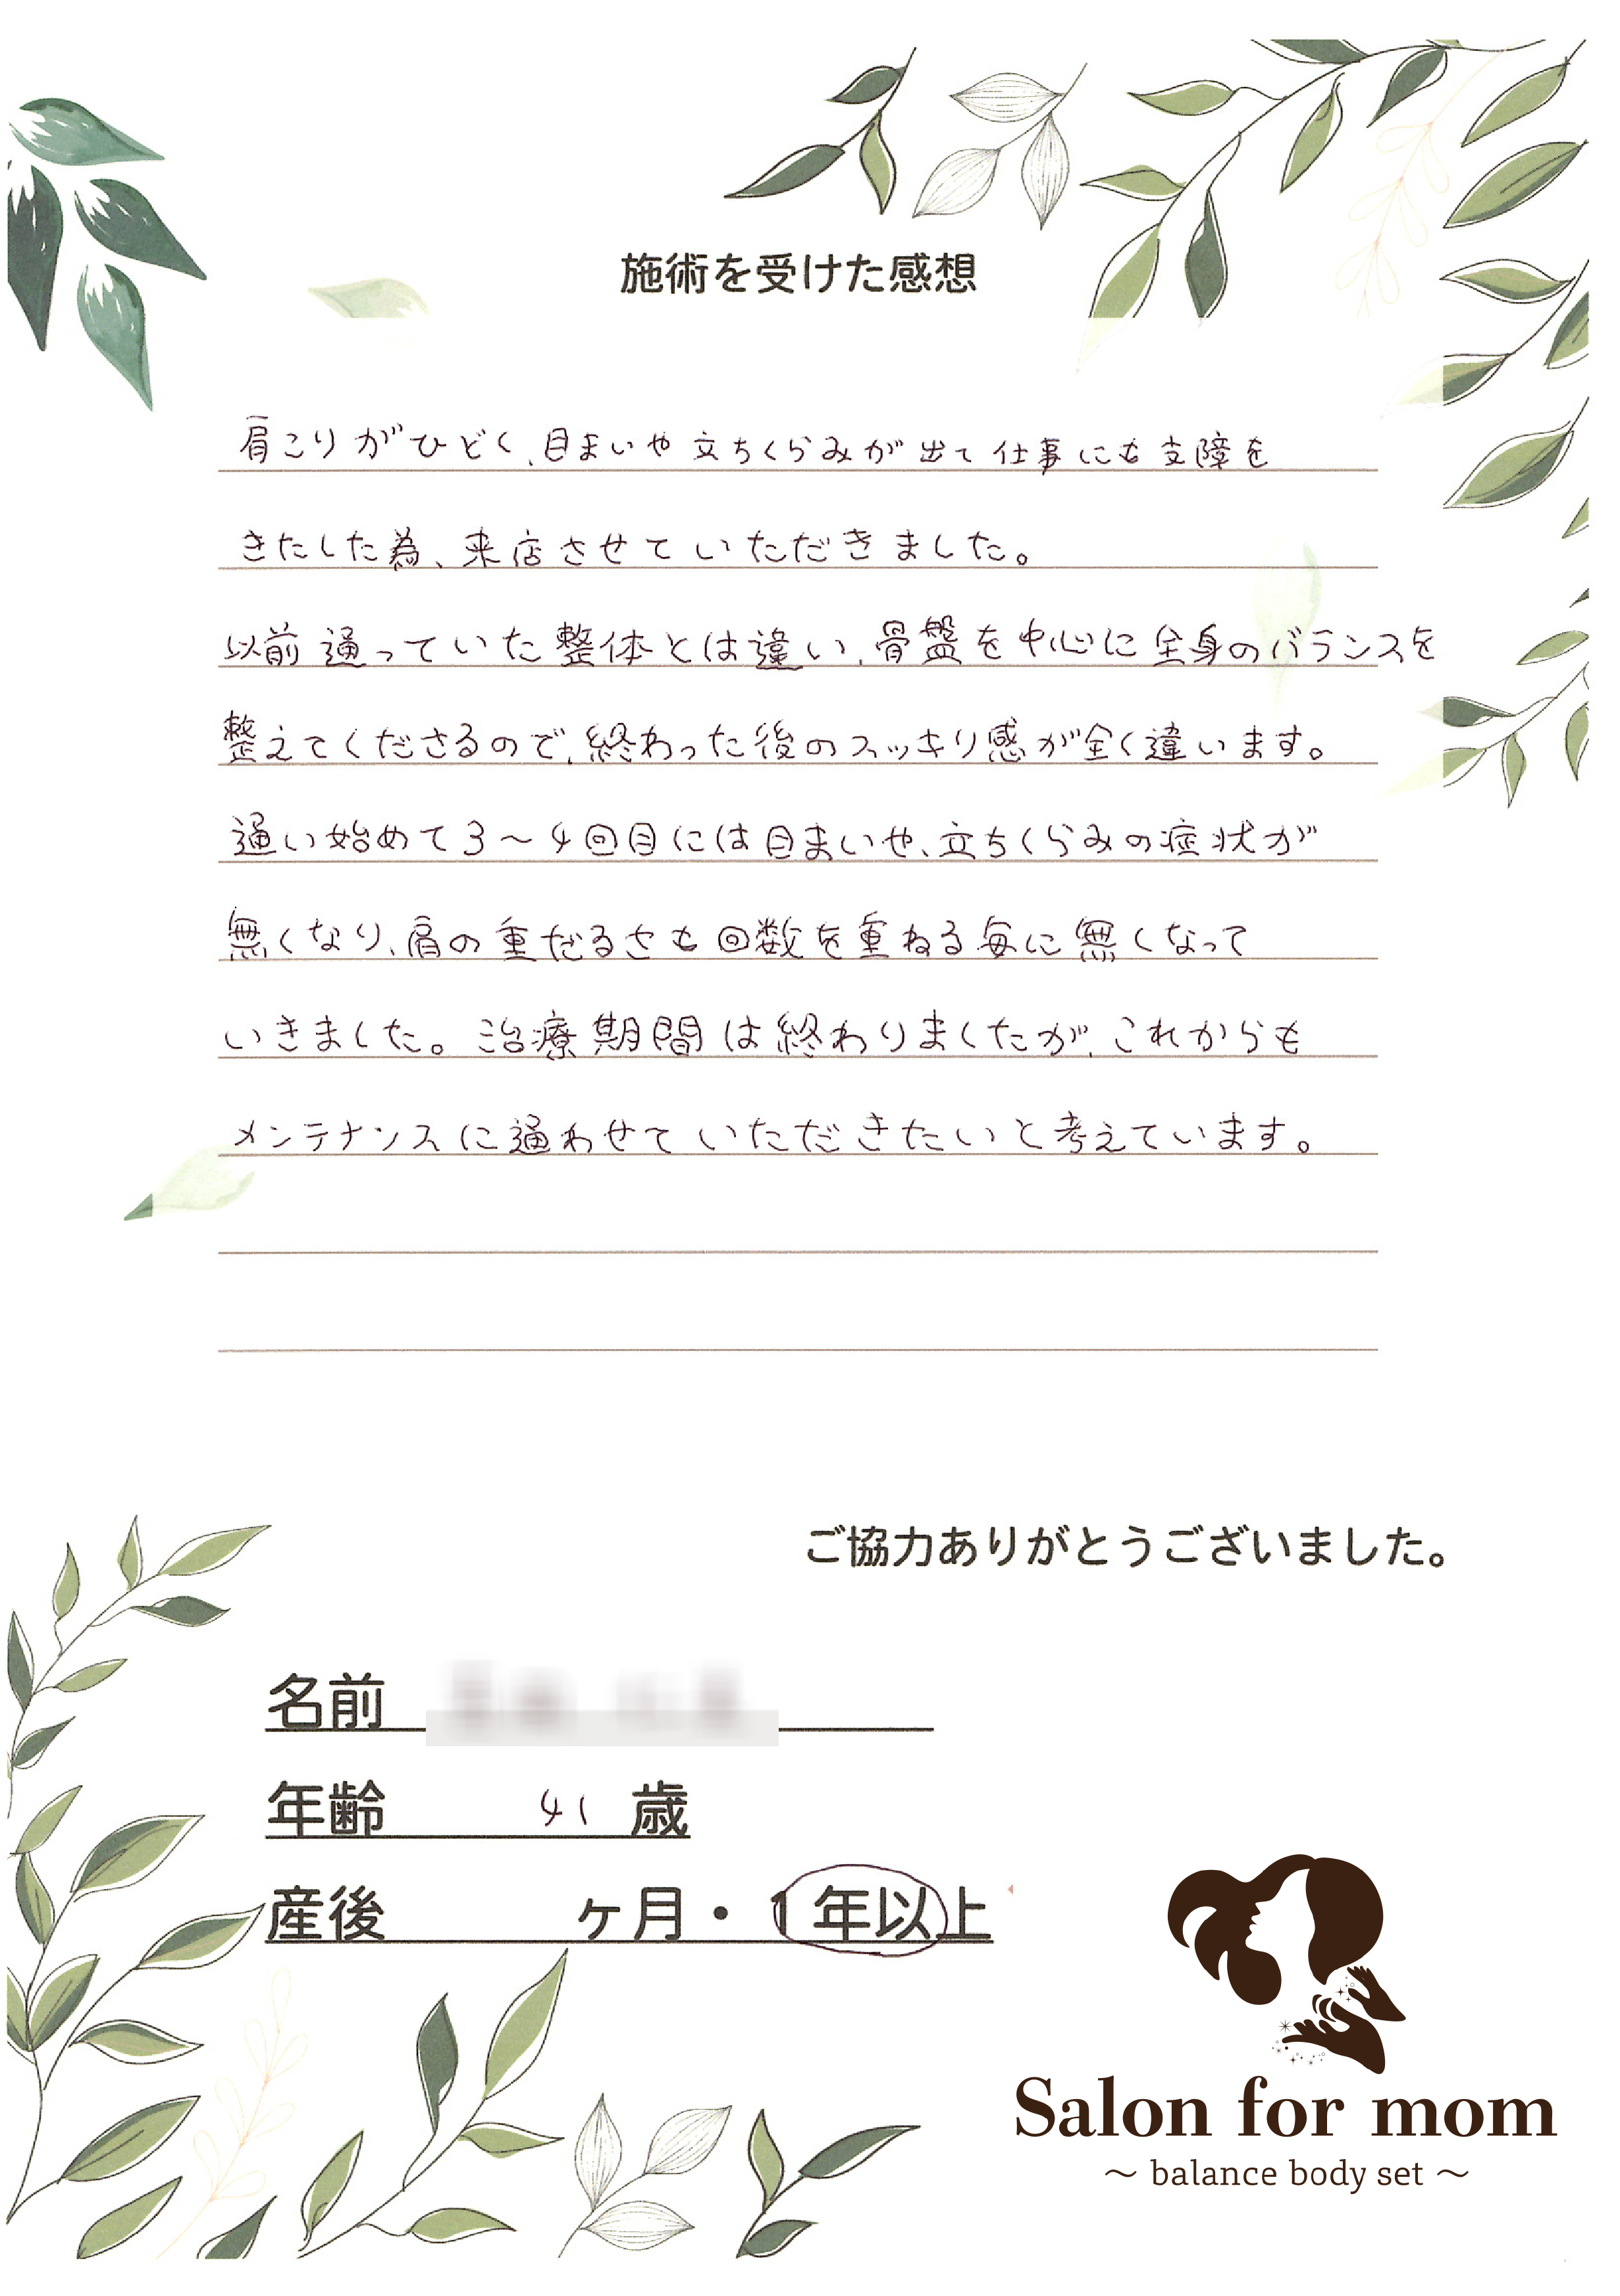 施術を受けた感想
肩こりがひどく、目まいや立ちくらみが出て仕事にも支障を
きたした為、来店させていただきました。
以前通っていた整体とは違い、骨盤を中心に全身のバランスを
整えてくださるので、終わった後のスッキリ感が全く違います。
通い始めて3〜4回目には目まいや、立ちくらみの症状が
無くなり、肩の重だるさも回数を重ねる毎に無くなって
いきました。治療期間は終わりましたが、これからも
メンテナンスに通わせていただきたいと考えています。
ご協力ありがとうございました。
名前
年齢 41 歳
産後 ヶ月・1年以上
Salon for mom
〜 balance body set 〜